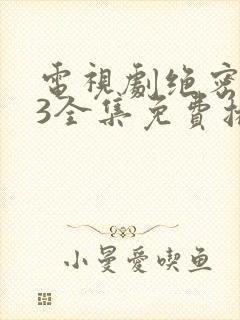 電視劇绝密
3全集免費
小曼愛喫鱼